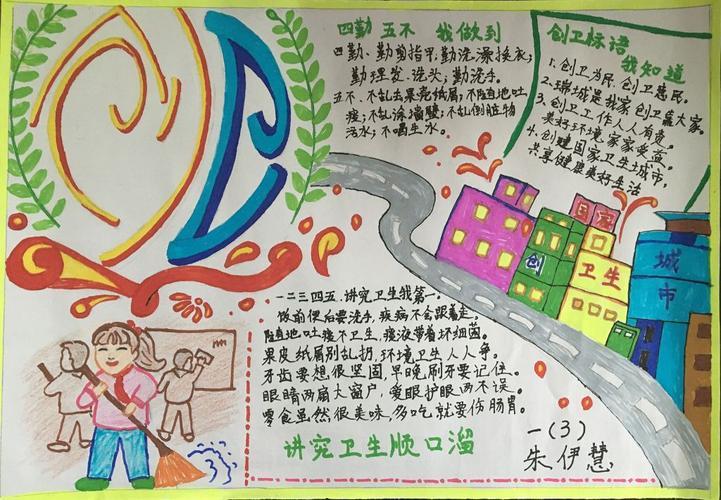 四勤 五不 我做到
四勤、勤剪指甲;勤洗澡换衣;
勤理发、洗头;勤洗手。
五不、不乱丢果壳纸屑;不随地吐
痰;不乱涂墙壁;不乱倒脏物
污水;不喝生水。
创卫标语
我知道
1.创卫为民,创卫惠民。
2.瑞城是我家 创卫靠大家。
3.创卫工作人人有责。
美好环境家家受益。
4.创建国家卫生城市,
共享健康美好生活
国家
创
卫生
城市
一二三四五.讲究卫生我第一。
饭前便后要洗手,疾病不会跟着走。
随地吐痰不卫生,痰液带着坏细菌。
果皮纸屑别乱扔,环境卫生人人争。
牙齿要想很坚固,早晚刷牙要记住。
眼睛两扇大窗户,爱眼护眼两不误。
零食虽然很美味,多吃就要伤肠胃。
讲究卫生顺口溜
一(3)
朱伊慧